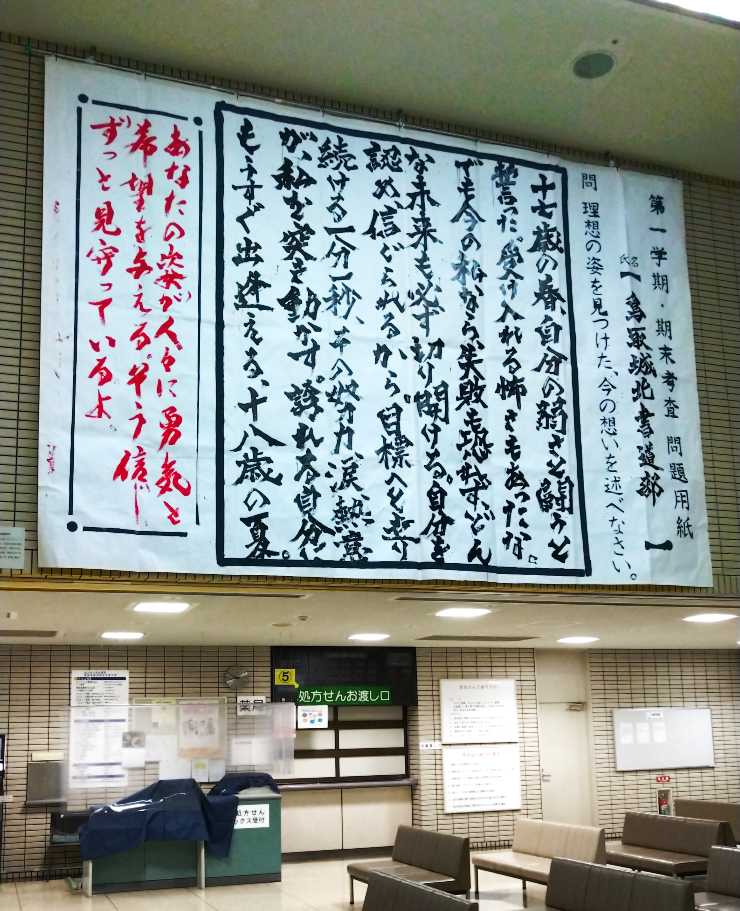 第一学期・期末考査 問題用紙
氏名【鳥取城北書道部】
問 理想の姿を見つけた、今の想いを述べなさい。
十七歳の春、自分の弱さと闘うと
誓った。受け入れる怖さもあったな。
でも今の私なら、失敗も恐れずどん
な未来も必ず切り開ける。自分を
認め、信じられるから。目標へと走り
続ける一分一秒、その努力、涙、熱意
が、私を突き動かす。誇れる自分に
もうすぐ出逢える、十八歳の夏。
あなたの姿が人々に勇気と
希望を与える。そう信じ
ずっと見守っているよ。
⑤
処方せんお渡し口
薬局
処方せん
ックス受付